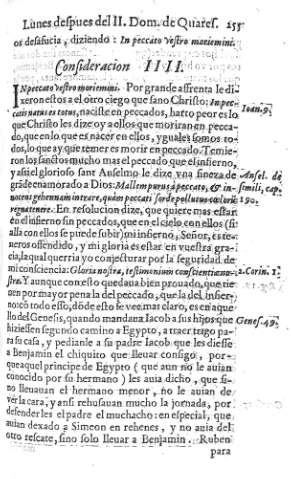 Lunes despues del II. Dom. de Quares. 255
os desafucia, diziendo: In peccato vestro moriemini.
Consideracion IIII.
IN peccato vestro moriemini. Por grande afrenta le di-
xeron estos a el otro ciego que sano Christo: In pec-
catis natus es totus, naciste en peccados, harto peor es lo
que Christo les dize y a ellos que moriran en pecca-
do, que en lo que es nacer en ellos, y guales somos to-
dos, lo que ay que temer es morir en peccado. Temie-
ron los sanctos mucho mas el peccado que el infierno,
y assi el glorioso sant Anselmo le dize vna fineza de
grãde enamorado a Dios: Mallem purus à peccato, & in-
nocens gehennam intrare, quàm peccati sorde pollutus cœlorũ
regna tenere. En resolucion dize, que quiere mas estar
en el infierno sin peccados, que en el cielo con ellos (si
alla con ellos se puede subir) mi infierno, Señor, es te-
neros offendido, y mi gloria es estar en vuestra gra-
cia, la qual querria yo conjecturar por la seguridad de
mi consciencia: Gloria nostra, testimonium conscientiæ no-
stræ. Y aunque con esto quedaua bien prouado, que tie-
nen por mayor pena la del peccado, que la del infier-
no: cõ todo esso, dõde esto se vee mas claro, es en aque-
llo del Genesis, quando mandaua Iacob a sus hijos que
hiziessen segundo camino a Egypto, a traer trigo pa-
ra su casa, y pedianle a su padre Iacob que les diesse
a Benjamin el chiquito que lleuar consigo, por-
que aquel principe de Egypto (que aun no le auian
conocido por su hermano) les auia dicho, que si-
no lleuauan el hermano menor, no le auian de
ver la cara, y ansi rehusauan mucho la jornada, por
defenderles el padre el muchacho: en especial, que
auian dexado a Simeon en rehenes, y no auia del
otro rescate, sino solo lleuar a Benjamin. Ruben
para
Ioan. 9.
Ansel. de
simili, cap.
190.
2. Corin. 1.
Genes. 49.